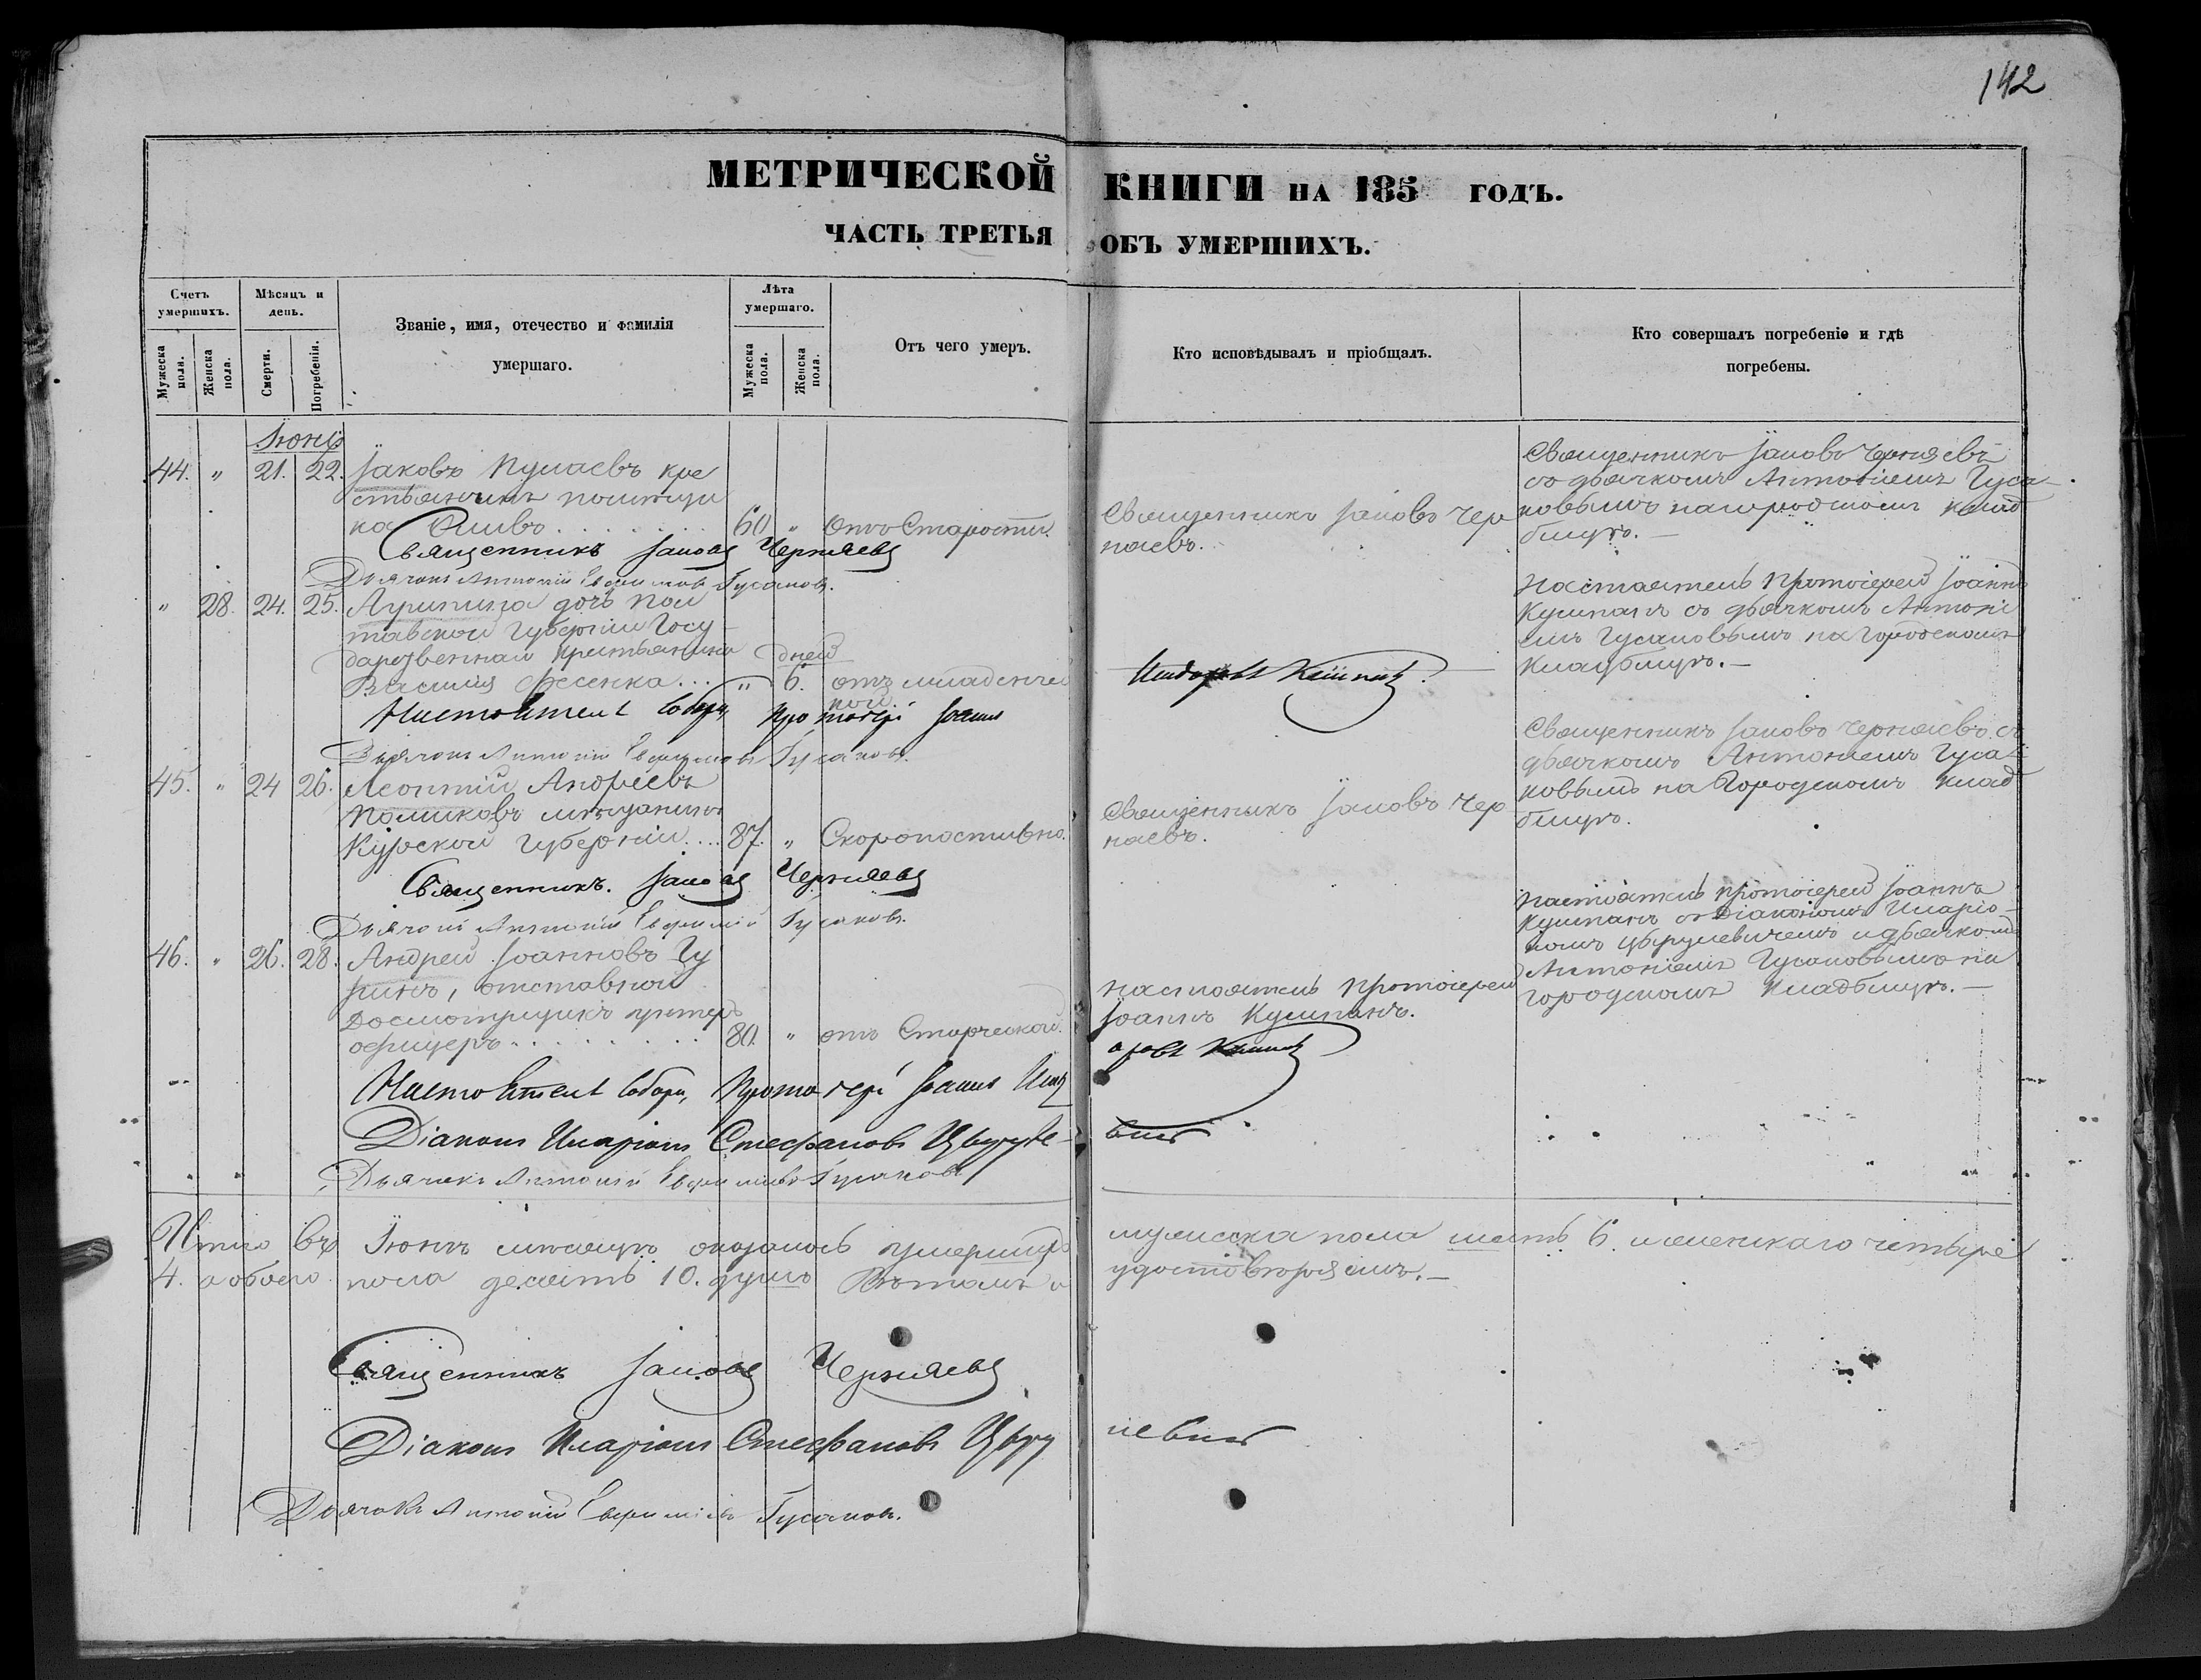 142
МЕТРИЧЕСКОЙ КНИГИ НА 185 ГОДЪ.
ЧАСТЬ ТРЕТЬЯ ОБЪ УМЕРШИХЪ.
Счетъ умершихъ.
Мѣсяцъ и день.
Званіе, имя, отечество и фамилія умершаго.
Лѣта умершаго.
Отъ чего умеръ.
Кто исповѣдывалъ и пріобщалъ.
Кто совершалъ погребеніе и гдѣ погребены.
Мужеска пола.
Женска пола.
Смерти.
Погребенія.
Мужеска пола.
Женска пола.
Іюнь
44. " 21. 22. Іаковъ кре
стьянинъ помѣщи
ка 60 " Отъ Старости.
Священникъ Іаковъ Чер
наевъ.
Священникъ Іаковъ Черняевъ
съ дьячкомъ Антоніемъ Гуса
ковымъ на городскомъ клад
бищѣ.
Священникъ Іаковъ Черняевъ
Дьячокъ Антоній Евфиміевъ Гусаковъ.
" 28. 24. 25. Агрипина дочь Пол
тавской Губерніи Госу
дарственнаи крестьянина дней
Василия Фесенка... " 6. отъ младенчес
кой
Настоятель Протоіерей Іоаннъ
съ дьячкомъ Антоні
емъ Гусаковымъ на Городскомъ
Кладбищѣ.
Настоятель Собора, Протоіерей Іоаннъ
Дьячокъ Антоній Евфиміевъ Гусаковъ.
45. " 24 26. Леонтий Андреевъ
мѣщанинъ
Курской Губерніи.... 87. " Скоропостижно.
Священникъ Іаковъ Чер
наевъ.
Священникъ Іаковъ Черняевъ съ
дьячкомъ Антоніемъ Гуса
ковымъ на Городскомъ клад
бищѣ.
Священникъ. Іаковъ Черняевъ
Дьячокъ Антоній Евфиміевъ Гусаковъ.
46. " 26. 28. Андрей Іоанновъ Гу
ринъ, отставной
Досмотрщикъ унтеръ
офицеръ 80. " отъ Старческой.
Настоятель Протоіерей
Іоаннъ
Настоятель Протоіерей Іоаннъ
съ Діакономъ Иларіо
номъ и дьячкомъ
Антоніемъ Гусаковымъ на
городскомъ Кладбищѣ.
Настоятель Собора, Протоіерей Іоаннъ
Діаконъ Иларіонъ Стефановъ
Дьячокъ Антоній Евфиміевъ Гусаковъ
Итого въ Іюнѣ мѣсяцѣ оказалось умершихъ мужеска пола шесть 6. и женскаго четыре
4. а обоего пола десять 10. душъ Вѣтомъ и удостовѣряемъ.
Священникъ Іаковъ Черняевъ
Діаконъ Иларіонъ Стефановъ
Дьячокъ Антоній Евфиміевъ Гусаковъ.